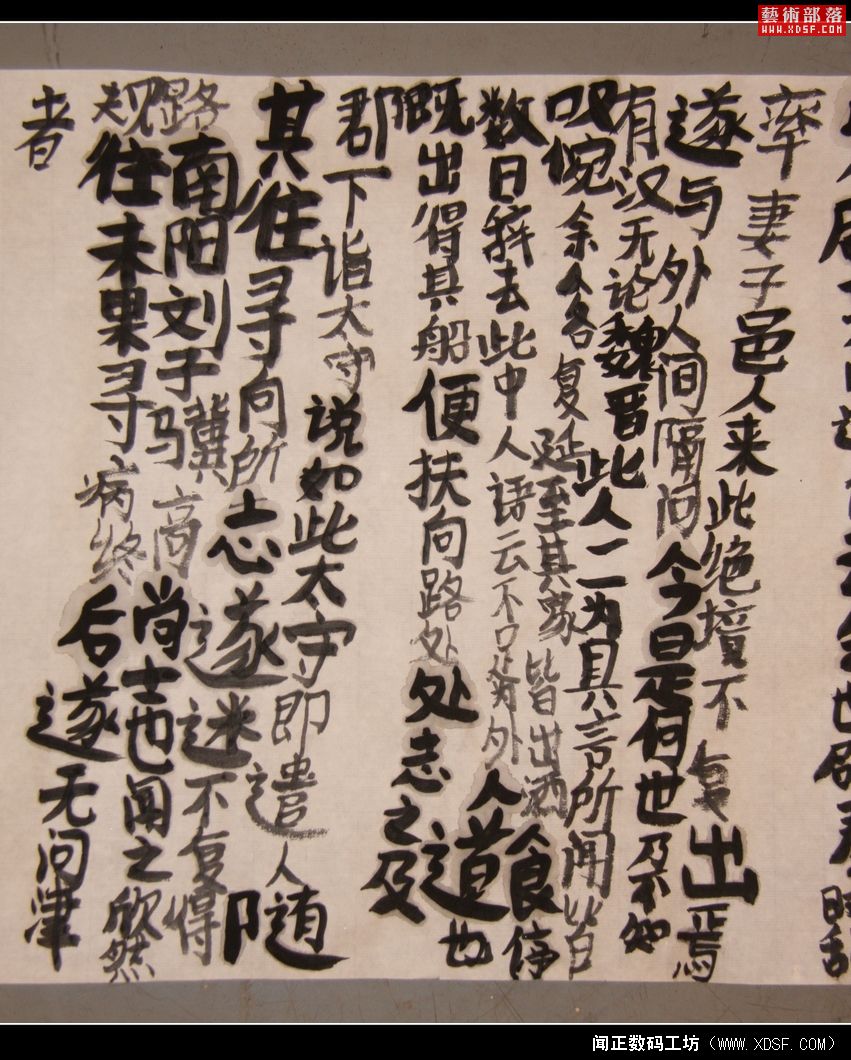 藝術部落
WWW.XDSF.COM
率妻子邑人来此绝境不复出焉
遂与外人间隔问今是何世乃不知
有汉无论魏晋此人一一为具言所闻皆
叹惋余人各复延至其家皆出酒食停
数日辞去此中人语云不足为外人道也
既出得其船便扶向路处处志之及
郡下诣太守说如此太守即遣人随
其往寻向所志遂迷不复得
路南阳刘子骥高尚士也闻之欣然
规往未果寻病终后遂无问津
者
闻正数码工坊（www.XDSF.COM）